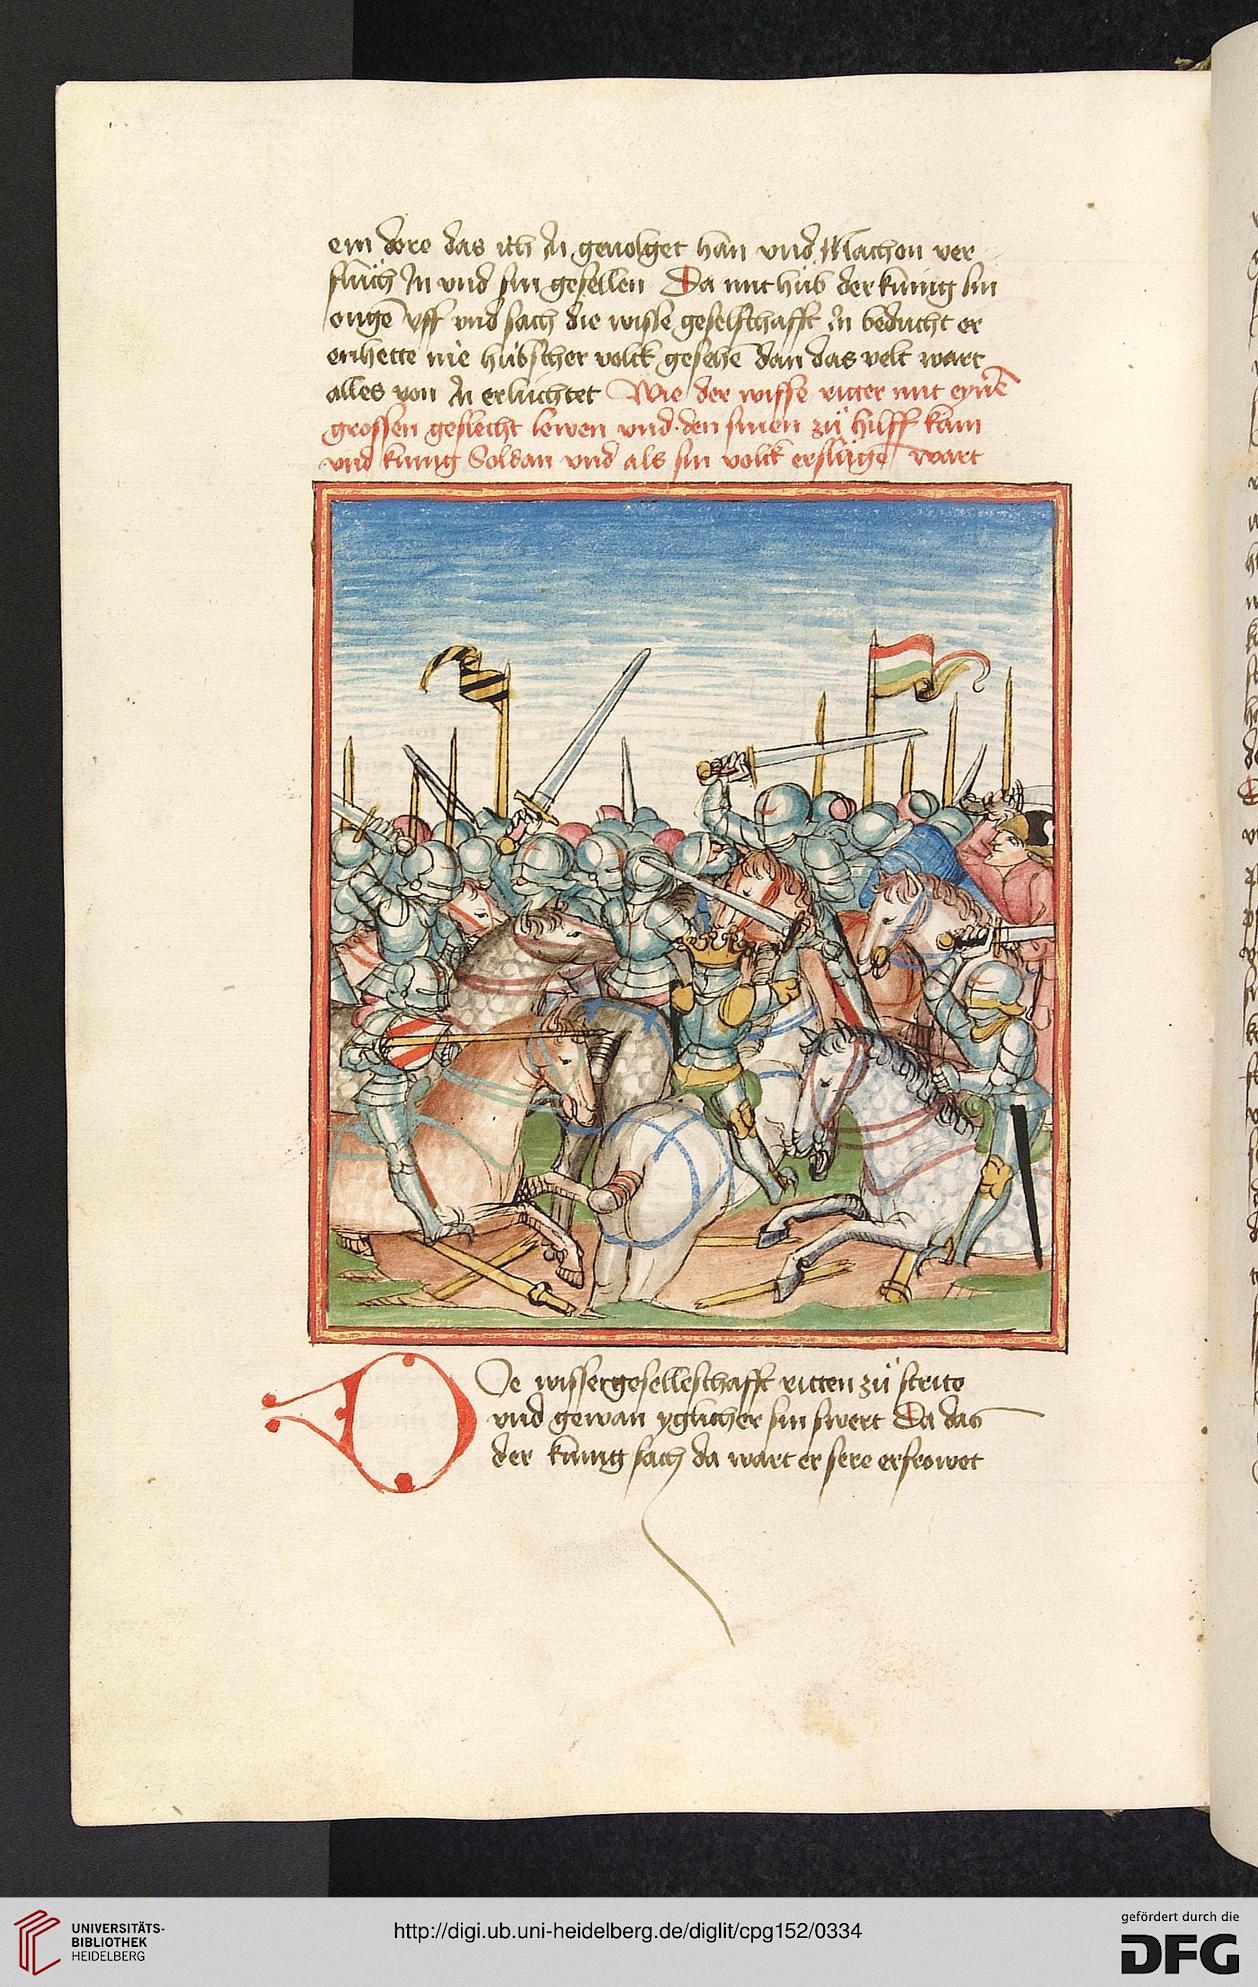 ein dore das ich In geuolget han vnd Machon ver
fluch In vnd sin gesellen Da mit hub der kunig sin
ougē vff vnd sach die wisse geselschafft In beducht er
enhette nie hubscher volck gesehē dan das velt wart
alles von In erluchtet Wie der wisse ritter mit eynē
grossen geslecht lewen vnd den sinen zů hilff kam
vnd kunig Soldan vnd als sin volck erslagē wart
De wisser geselleschafft ritten zů strite
vnd gewan yglicher sin swert Da das
der kunig sach da wart er sere erfrowet
UNIVERSITÄTS-
BIBLIOTHEK
HEIDELBERG
http://digi.ub.uni-heidelberg.de/diglit/cpg152/0334
gefördert durch die
DFG